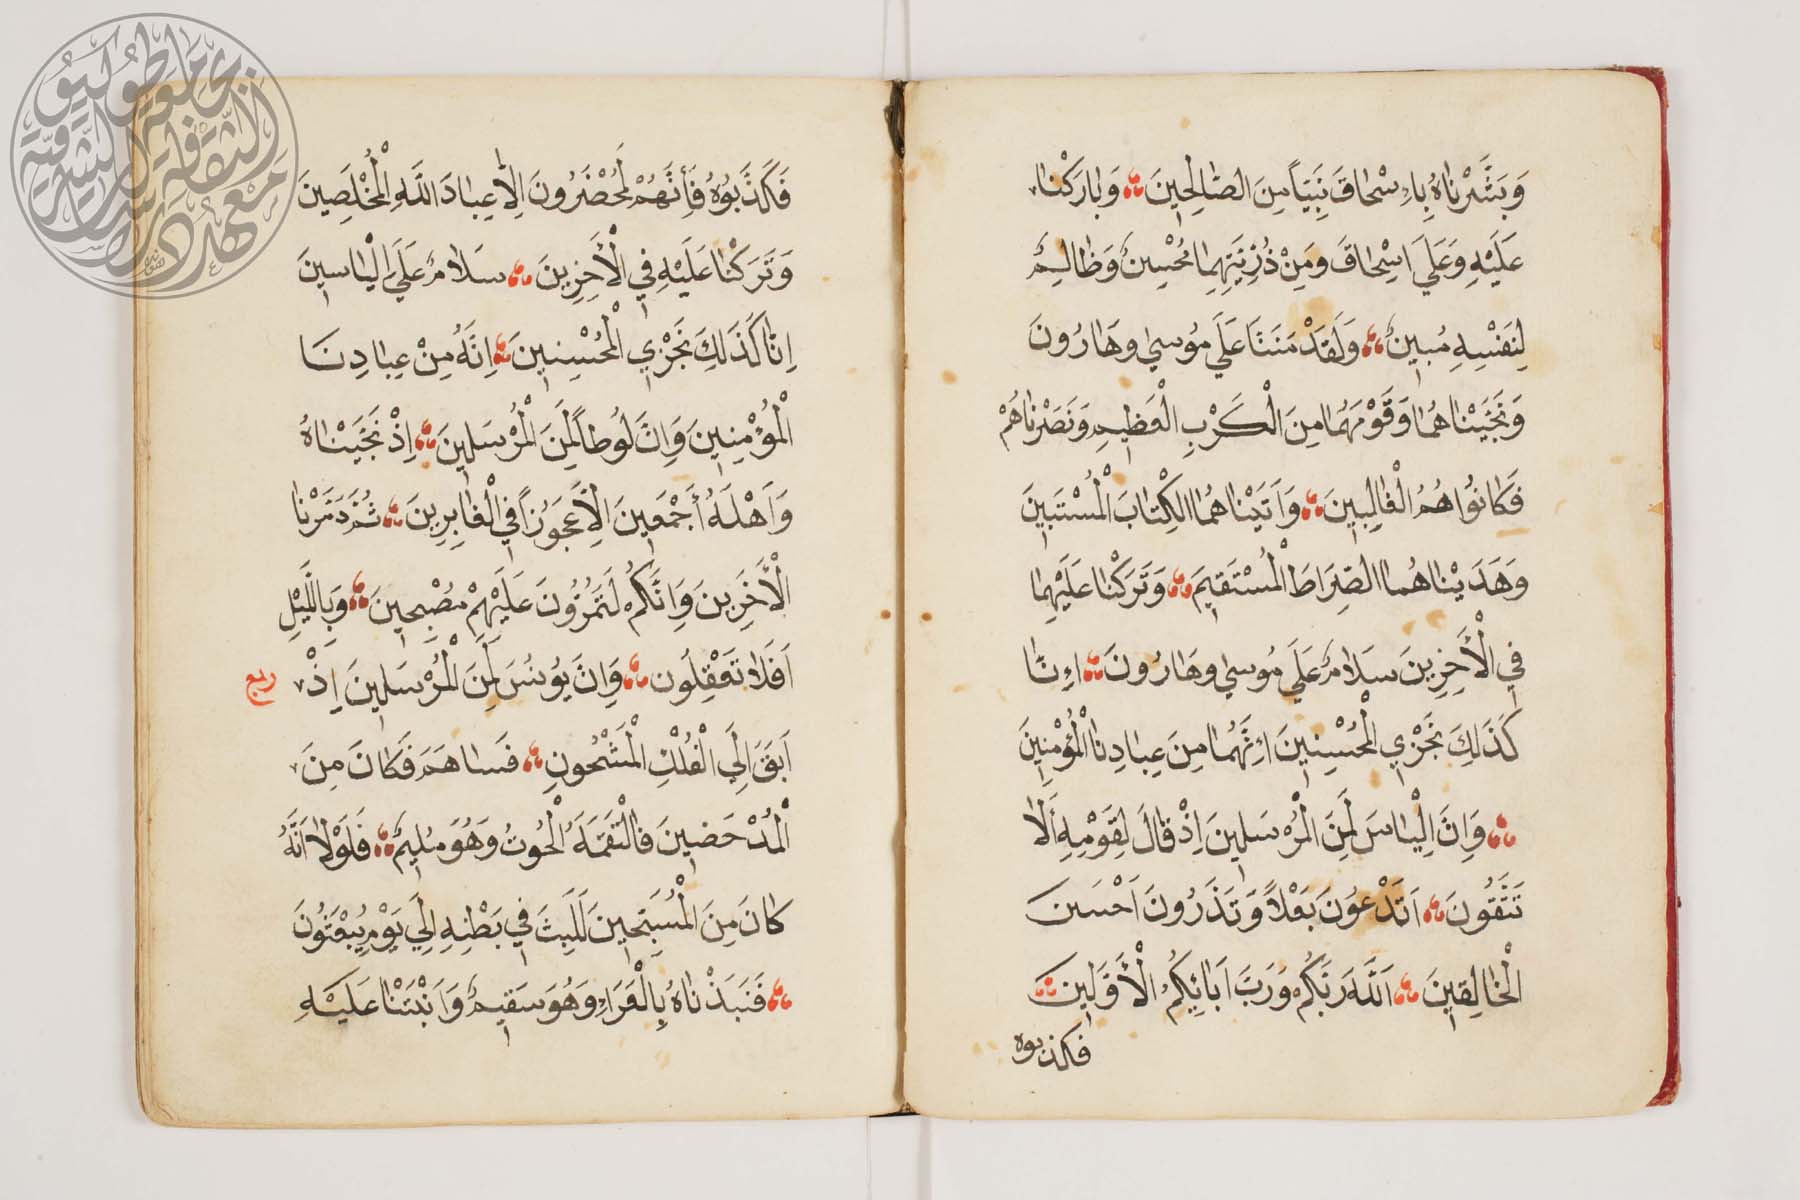 وَبَشَّرْنَاهُ بِاِسْحَاقَ نَبِيّاً مِنَ الصَّالِحِينَ وَبَارَكْنَا
عَلَيْهِ وَعَلَي اَسِحْاقَ وَمِنْ ذُرِّيَّتِهِمَا مُحْسِنٌ وَظَالِمٌ
لِنَفْسِهِ مُبِينٌ وَلَقَدْ مَنَنَّا عَلَي مُوسٰي وَهَارُونَ
وَنَجَّيْنَاهُمَا وَقَوْمَهُمَا مِنَ الْكَرْبِ الْعَظِيمِ وَنَصَرْنَاهُمْ
فَكَانُوا هُمُ الْغَالِبِينَ وَاَتَيْنَاهُمَا الْكِتَابَ الْمُسْتَبِينَ
وَهَدَيْنَاهُمَا الصِّرَاطَ الْمُسْتَقِيمَ وَتَرَكْنَا عَلَيْهِمَا
فِي الْأَخِرِينَ سَلَامٌ عَلَي مُوسٰي وَهَارُونَ اِنَّا
كَذَلِكَ نَجْزِي الْمُحْسِنِينَ اِنَّهُمَا مِنَ عِبَادِنَا الْمُؤْمِنِينَ
وَاِنَّ اِلْيَاسَ لَمِنَ الْمُرْسَلِينَ اِذْ قَالَ لِقَوْمِهِ أَلَا
تَتَّقُونَ اَتَدْعُونَ بَعْلاً وَتَذَرُونَ اَحْسَنَ
الْخَالِقِينَ اَللَّهَ رَبَّكُمْ وَرَبَّ اَبَائِكُمُ الْأَوَّلِينَ
فكذبوه
فَكَذَّبُوُهُ فَأِنَّهُمْ لَمُحْضَرُونَ اِلَّا عِبَادَ اللَّهِ الْمُخْلَصِينَ
وَتَرَكْنَا عَلَيْهِ فِي الْأَخِرِينَ سَلَامٌ عَلَي اِلْيَاسِينَ
اِنَّا كَذَلِكَ نَجْزِي الْمُحْسِنِينَ اِنَّهُ مِنْ عِبَادِنَا
الْمُؤْمِنِينَ وَاِنَّ لُوطاً لَمِنَ الْمُرْسَلِينَ اِذْ نَجَّيْنَاهُ
وَاَهْلَهُ أَجْمَعِينَ اِلَّا عَجَوُزاً فِي الْغَابِرِينَ ثُمَّ دَمَّرْنَا
الْأَخَرِينَ وَاِنَّكُمْ لَتَمُرُّونَ عَلَيْهِمْ مُصْبِحِينَ وَبِاللَّيْلِ
اَفَلَا تَعْقِلُونَ وَاِنَّ يوُنُسَ لَمِنَ الْمُرْسَلِينَ اِذْ
ربع
اَبَقَ اِلَي الْفُلْكِ الْمَشْحُونِ فَسَاهَمَ فَكَانَ مِنَ
الْمُدْحَضِينَ فَالْتَقَمَهُ الْحُوتُ وَهُوَ مُلِيمٌ فَلَوْلَا اَنَّهُ
كَانَ مِنَ الْمُسَبِّحِينَ لَلَبِثَ فِي بَطْنِهِ اِلَي يَوْمِ يُبْعَثُونَ
فَنَبَذْنَاهُ بِالْعَرَاءِ وَهُوَ سَقِيمٌ وَاَنْبَتْنَا عَلَيْهِ